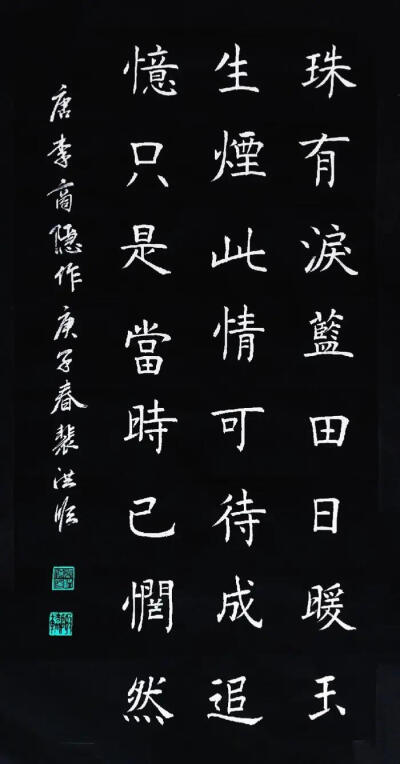 珠有淚藍田日暖玉
生煙此情可待成追
憶只是當時已惘然
唐李商隱作庚子春裴洪順